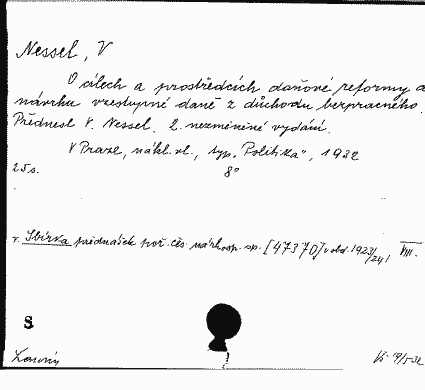 Nessel, V
O cílech a prostředcích daňové reformy a
návrhu vzestupné daně z důchodu bezpracného.
Přednesl V. Nessel. 2. nezměněné vydání.
V Praze, nákl. vl., typ. "Politika", 1932
25 s. 8°
v. Sbírka přednášek poř. čes. nár. hosp. sp. [47370] v obd. 1923/24, VIII.
8
9/5-32